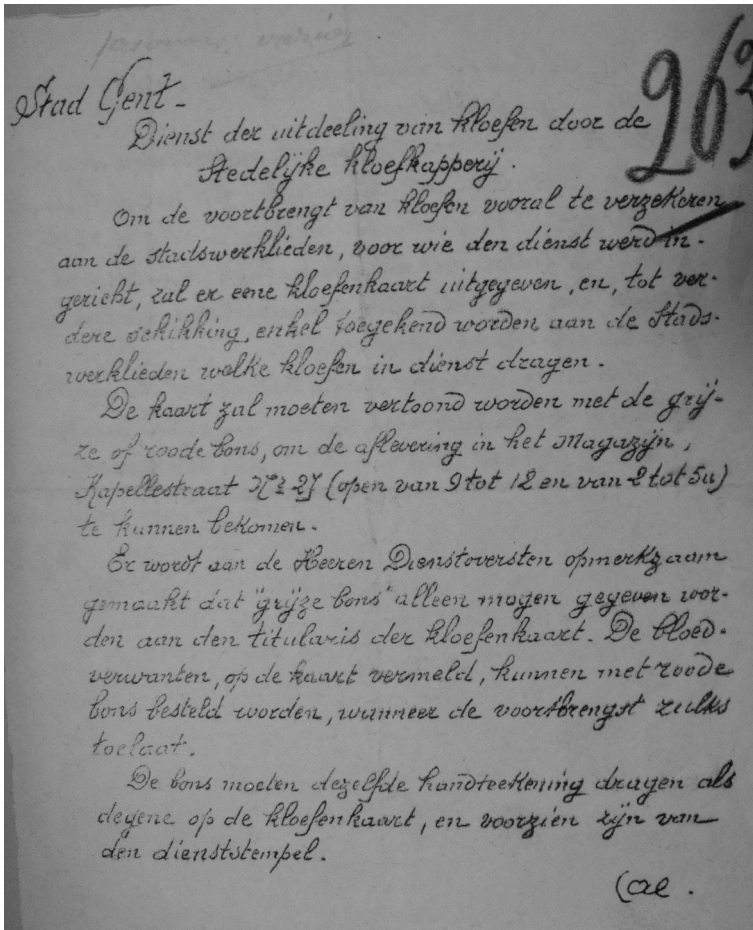 Stad Gent -
263
Dienst der uitdeeling van kloefen door de
Stedelijke kloefkapperij.
Om de voortbrengt van kloefen vooral te verzekeren
aan de stadswerklieden, voor wie den dienst werd in-
gericht, zal er eene kloefenkaart uitgegeven, en, tot ver-
dere schikking, enkel toegekend worden aan de Stads-
werklieden welke kloefen in dienst dragen.
De kaart zal moeten vertoond worden met de grij-
ze of roode bons, om de aflevering in het Magazijn,
Kapellestraat Nr 27 (open van 9 tot 12 en van 2 tot 5u)
te kunnen bekomen.
Er wordt aan de Heeren Dienstoversten opmerkzaam
gemaakt dat "grijze bons" alleen mogen gegeven wor-
den aan den titularis der kloefenkaart. De bloed-
verwanten, op de kaart vermeld, kunnen met roode
bons besteld worden, wanneer de voortbrengst zulks
toelaat.
De bons moeten dezelfde handteekening dragen als
degene op de kloefenkaart, en voorzien zijn van
den dienststempel.